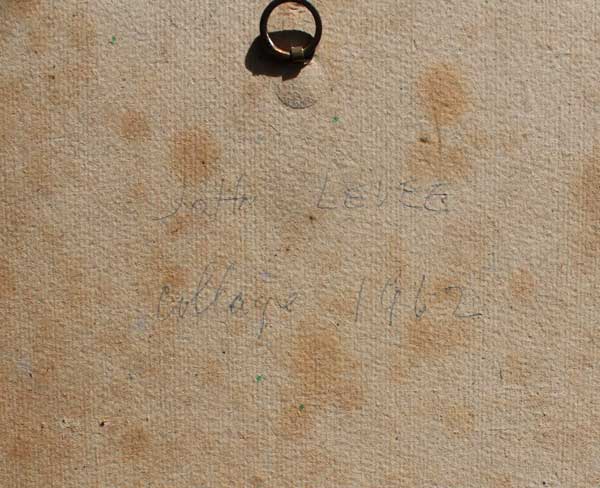 John LEVEE
collage 1962